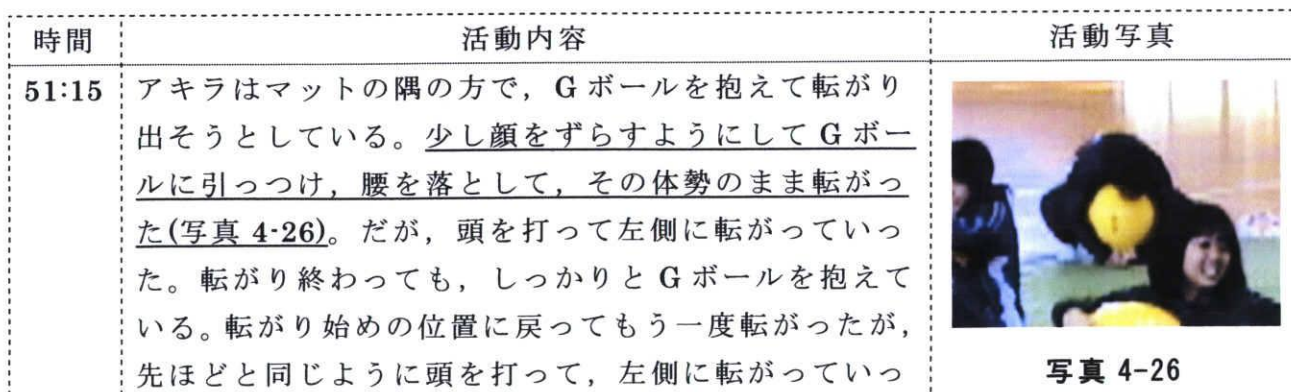 時間 活動内容 活動写真
51:15 アキラはマットの隅の方で，G ボールを抱えて転がり
出そうとしている。少し顔をずらすようにして G ボー
ルに引っつけ，腰を落として，その体勢のまま転がっ
た(写真 4-26)。だが，頭を打って左側に転がっていっ
た。転がり終わっても，しっかりと G ボールを抱えて
いる。転がり始めの位置に戻ってもう一度転がったが，
先ほどと同じように頭を打って，左側に転がっていっ
写真 4-26